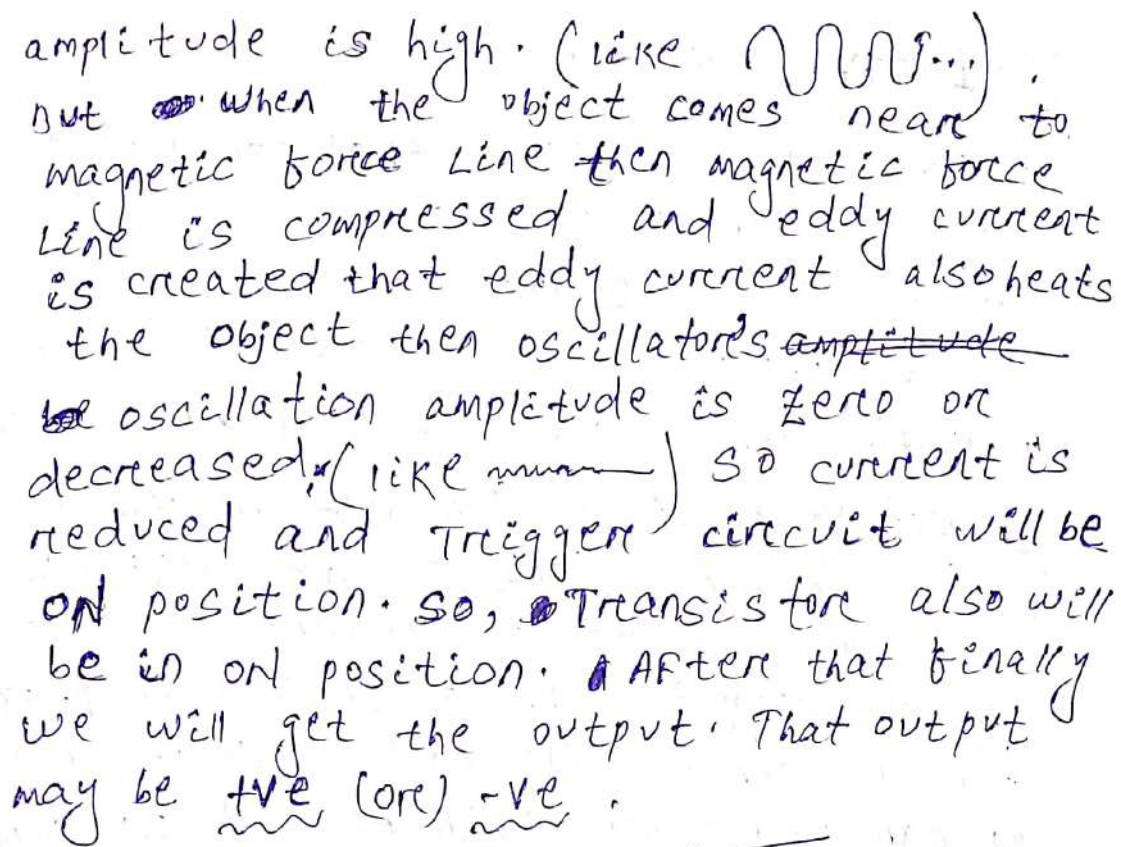 amplitude is high. (like ...).
But when the object comes near to
magnetic force Line then magnetic force
Line is compressed and eddy current
is created that eddy current also heats
the object then oscillator's amplitude
oscillation amplitude is zero or
decreased. (like ) so current is
reduced and Trigger circuit will be
ON position. so, Transistor also will
be in ON position. After that finally
we will get the output. That output
may be +ve (or) -ve.